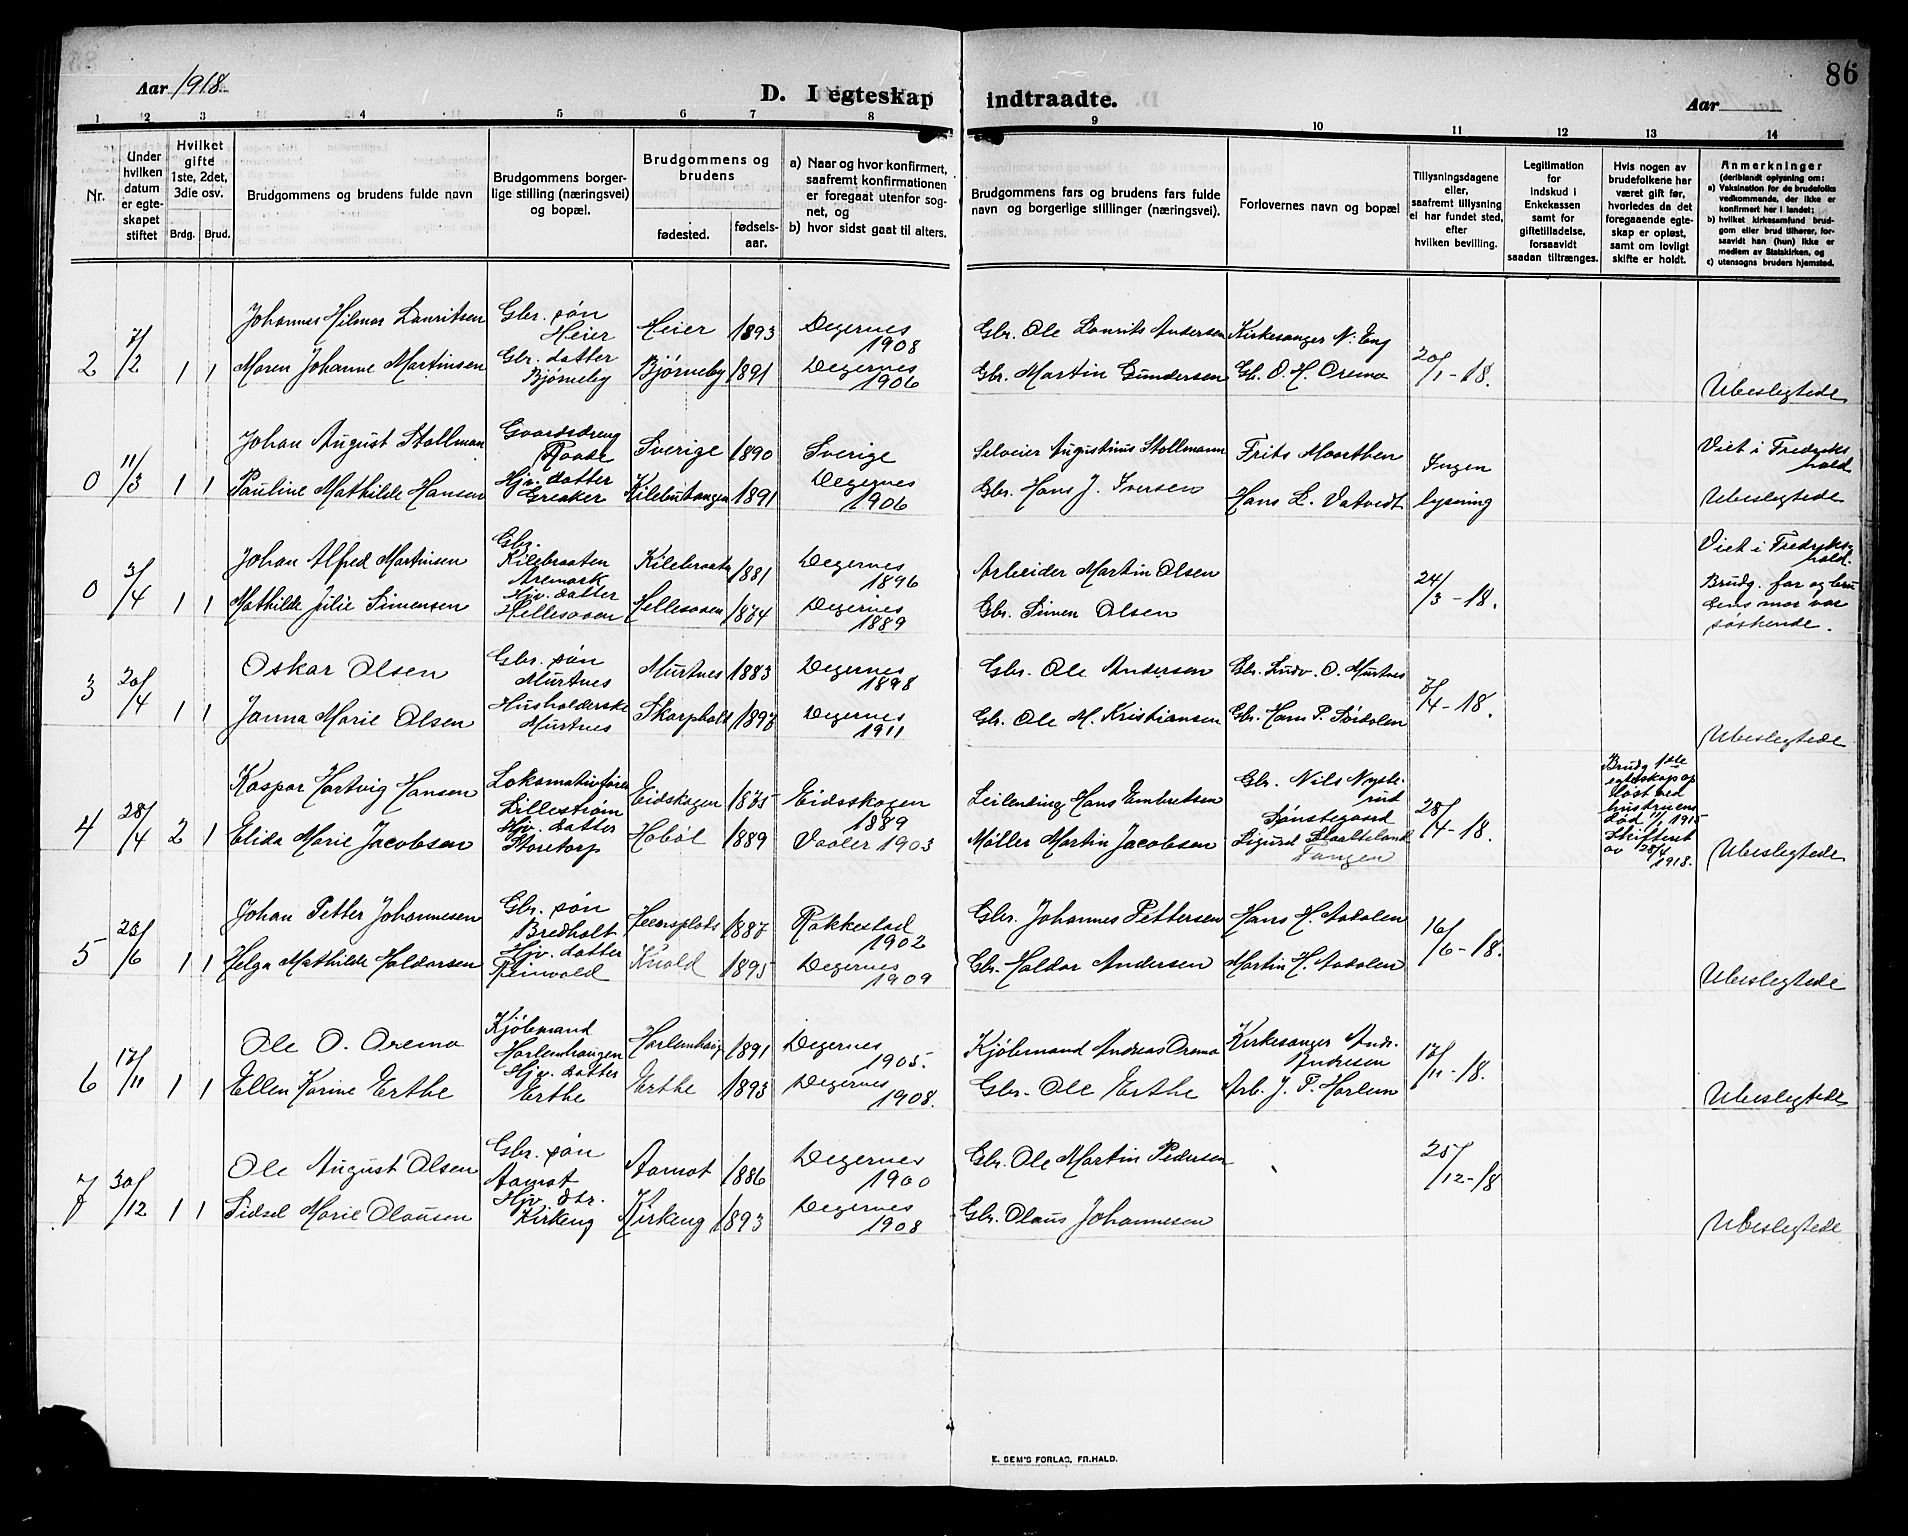 86
Aar 1918
D. I egteskap indtraadte.
Aar
1 2 3 4 5 6 7 8 9 10 11 12 13 14
Nr.
Under hvilken datum er egteskapet stiftet
Hvilket gifte 1ste, 2det, 3die osv.
Brdg. Brud.
Brudgommens og brudens fulde navn
Brudgommens borgerlige stilling (næringsvei) og bopæl.
Brudgommens og brudens
fødested.
fødselsaar.
a) Naar og hvor konfirmert, saafremt konfirmationen er foregaat utenfor sognet, og
b) hvor sidst gaat til alters.
Brudgommens fars og brudens fars fulde navn og borgerlige stillinger (næringsvei).
Forlovernes navn og bopæl
Tillysningsdagene eller, saafremt tillysning ei har fundet sted, efter hvilken bevilling.
Legitimation for indskud i Enkekassen samt for giftetilladelse, forsaavidt saadan tiltrænges.
Hvis nogen av brudefolkene har været gift før, hvorledes da det foregaaende egteskap er opløst, samt om lovligt skifte er holdt.
Anmerkninger
(deriblandt oplysning om:
a) Vaksination for de brudefolks vedkommende, der ikke er konfirmert her i landet;
b) hvilket kirkesamfund brudgom eller brud tilhører, forsaavidt han (hun) ikke er medlem av Statskirken, og
c) utensogns bruders hjemsted.
2 7/2 Johannes Hilmar Lauritsen Gbr. søn Heier Heier 1893 Degernes 1908 Gbr. Ole Laurits Andersen Kirkesanger N. Eng 20/1-18.
1 1 Maren Johanne Martinsen Gbr. datter Bjørneby Bjørneby 1891 Degernes 1906 Gbr. Martin Gundersen Gb. O. H. Oremo Ubeslegtede
0 11/3 Johan August Stollman Gaardsdreng Raade Sverige 1890 Sverige Selveier Augustinus Stollmann Frits Moortben Ingen lysning Viet i Fredrikshald
1 1 Pauline Mathilde Hansen Hjv. datter Greaker Kilebutangen 1891 Degernes 1906 Gbr. Hans J. Iversen Hans L. Vatvedt Ubeslegtede
0 3/4 Johan Alfred Martinsen Gbr. Kilebraaten Aremark Kilebraaten 1881 Degernes 1896 Arbeider Martin Olsen 24/3-18. Viet i Fredrikshald.
1 1 Mathilde Julie Simensen Hjv. datter Hellesaaen Hellesaaen 1874 Degernes 1889 Gbr. Simen Olsen Brudg. far og brudens mor var søskende.
3 20/4 Oskar Olsen Gbr. søn Murtnes Murtnes 1883 Degernes 1898 Gbr. Ole Andersen Gbr. Ludv. O. Murtnes 7/4-18.
1 1 Janna Marie Olsen Husholderske Murtnes Skorphol 1897 Degernes 1911 Gbr. Ole M. Kristiansen Gbr. Hans P. Sørdalen Ubeslegtede
4 28/4 Kaspar Hartvig Hansen Lokomotivfører Lillestrøm Eidskogen 1875 Eidsskogen 1889 Leilending Hans Embretsen Gbr. Nils Nysterud Sønstegaard 28/4-18. Brudg 1ste egteskap opløst ved hustruens død 11/1 1915 Skifteret av 28/4 1918.
2 1 Elida Marie Jacobsen Hjv. datter Storetorp Hobøl 1889 Vaaler 1903 Møller Martin Jacobsen Sigurd Tangen Ubeslegtede
5 23/6 Johan Petter Johannesen Gbr. søn Bredholt Heiersplads 1887 Rakkestad 1902 Gbr. Johannes Pettersen Hans H. Aadalen 16/6-18.
1 1 Helga Mathilde Haldorsen Hjv. datter Reinvold Kvold 1895 Degernes 1909 Gbr. Haldor Andersen Martin H. Aadalen Ubeslegtede
6 17/11 Ole O. Oremo Kjøbmand Harlemhaugen Harlemhaug 1891 Degernes 1905. Kjøbmand Andreas Oremo Kirkesanger Andr. Andresen 17/11-18.
1 1 Ellen Karine Erthe Hjv. datter Erthe Erthe 1893 Degernes 1908. Gbr. Ole Erthe Arb. J. P. Harlem Ubeslegtede
7 30/12 Ole August Olsen Gbr. søn Aamot Aamot 1886 Degernes 1900 Gbr. Ole Martin Pedersen 25/12-18
1 1 Sidsel Marie Olausen Hjv. dtr. Kirkeng Kirkeng 1893 Degernes 1908 Gbr. Olaus Johannesen Ubeslegtede
E. SEM'S FORLAG, FR.HALD.